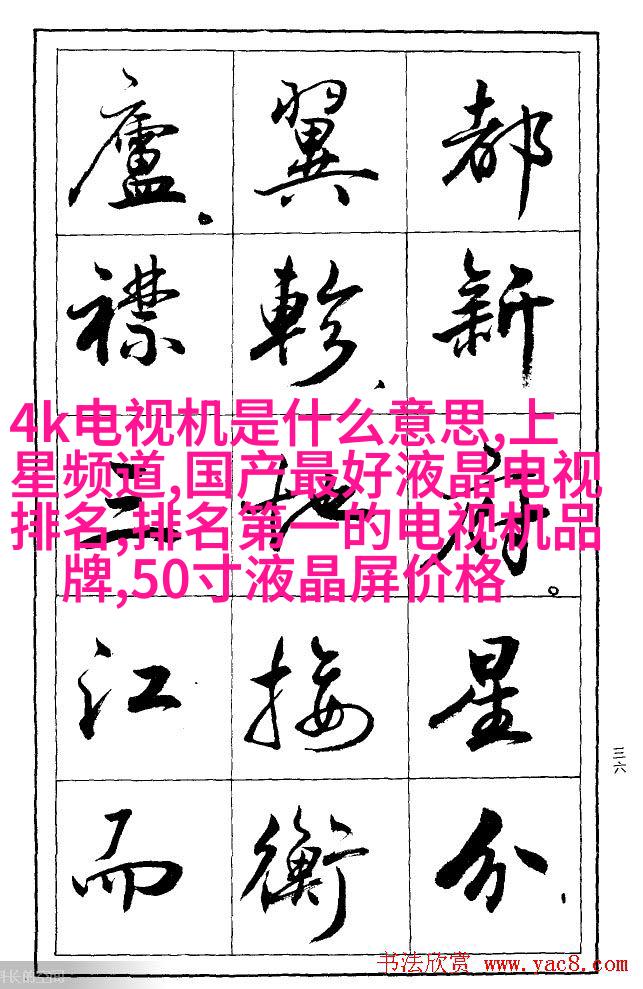 都新府。星分、
翼軫、地接衡
廬。襟三江而
4k电视机是什么意思,上
星频道,国产最好液晶电视
排名,排名第一的电视机品
牌,50寸液晶屏价格
三六
书法欣赏 www.yac8.com
长的空间